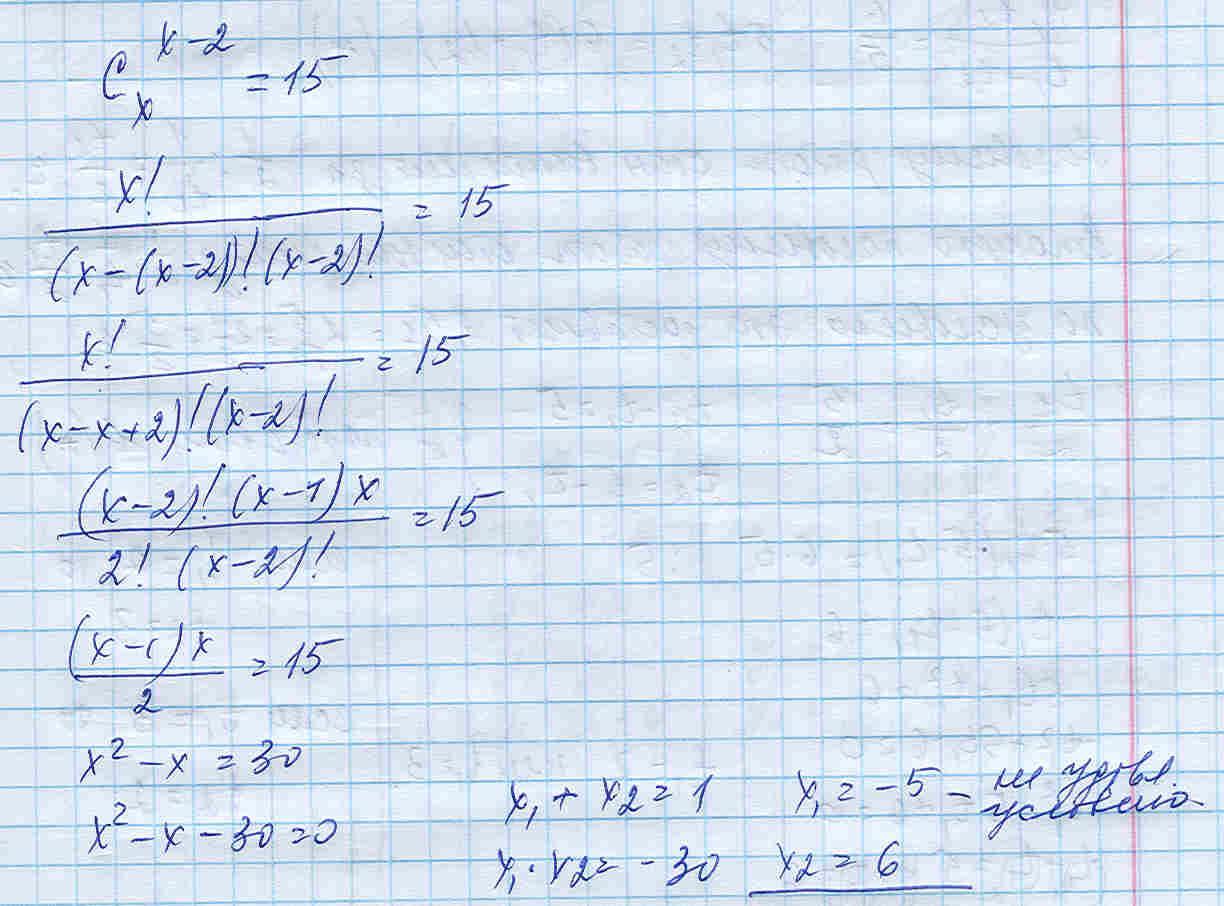 C_x^{x-2} = 15
x! / ((x-(x-2))!(x-2)!) = 15
x! / ((x-x+2)!(x-2)!) = 15
(x-2)!(x-1)x / (2!(x-2)!) = 15
(x-1)x / 2 = 15
x² - x = 30
x² - x - 30 = 0
x₁ + x₂ = 1
x₁ · x₂ = -30
x₁ = -5 - не удовл. условию
x₂ = 6